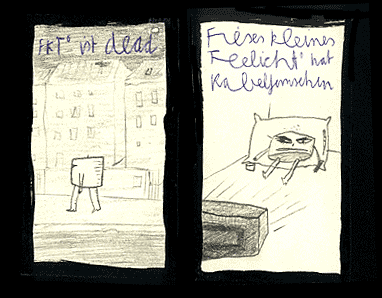 FKT° ist dead
Fieses kleines
Feelicht° hat
Kabelfernsehen